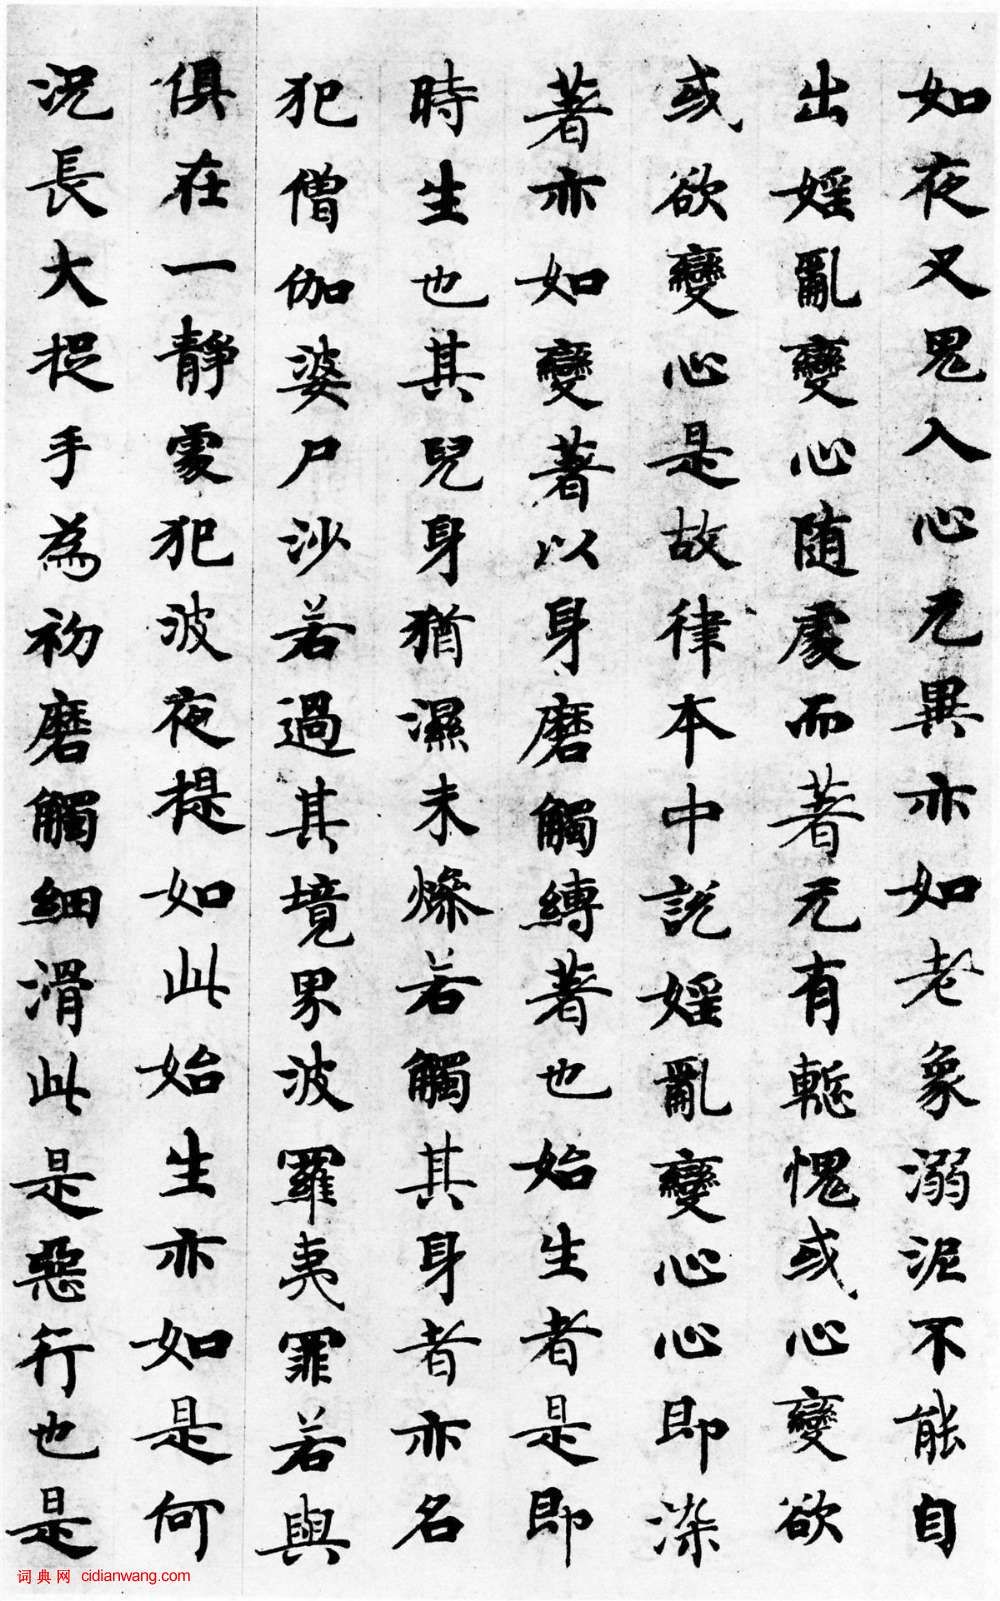 如夜叉鬼入心无異亦如老象溺泥不能自
出婬亂變心随處而著无有慙愧或心變欲
或欲變心是故律本中說婬亂變心心即染
著亦如變著以身磨觸縛著也始生者是即
時生也其兒身猶濕未燥若觸其身者亦名
犯僧伽婆尸沙若過其境界波羅夷罪若與
俱在一靜處犯波夜提如此始生亦如是何
況長大捉手為初磨觸細滑此是惡行也是
词典网 cidianwang.com